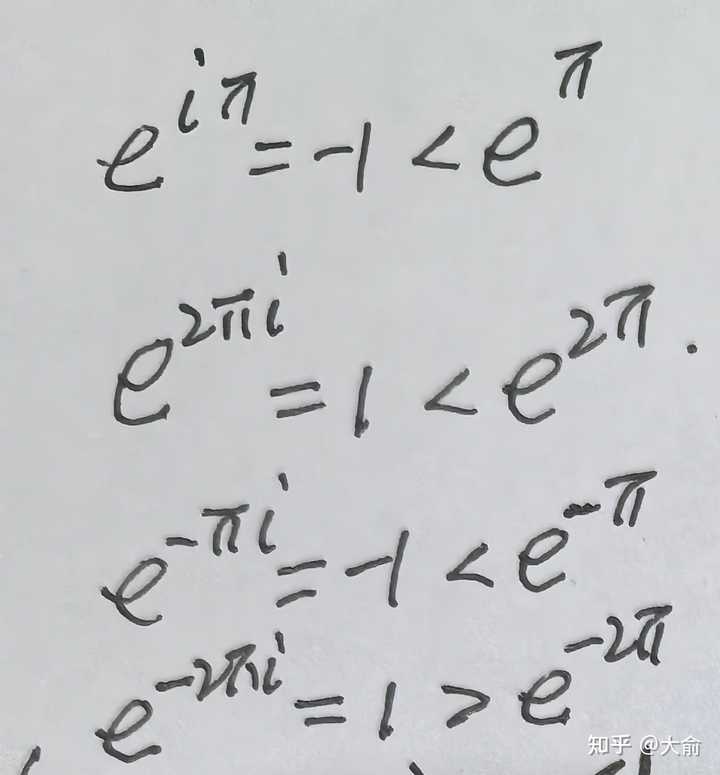 e^{iπ} = -1 < e^{π}
e^{2πi} = 1 < e^{2π}.
e^{-πi} = -1 < e^{-π}
e^{-2πi} = 1 > e^{-2π}
知乎 @大俞